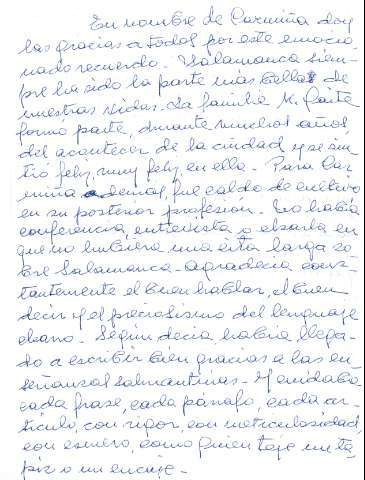 En nombre de Carmiña doy
las gracias a todos por este emocio
nado recuerdo. Salamanca siem-
pre ha sido la parte más bella de
nuestras vidas. La familia M. Gaite
formó parte, durante muchos años
del acontecer de la ciudad y se sin
tió feliz, muy feliz, en ella. Para Car
miña además, fue caldo de cultivo
en su posterior profesión. No había
conferencia, entrevista o charla en
que no hubiera una cita larga so
bre Salamanca. Agradecía cons-
tantemente el buen hablar, el buen
decir y el preciosismo del lenguaje
charro. Según decía había llega-
do a escribir bien gracias a las en-
señanzas salmantinas. Y cuidaba
cada frase, cada párrafo, cada ar-
tículo, con rigor, con meticulosidad,
con esmero, como quien teje un ta
piz o un encaje.